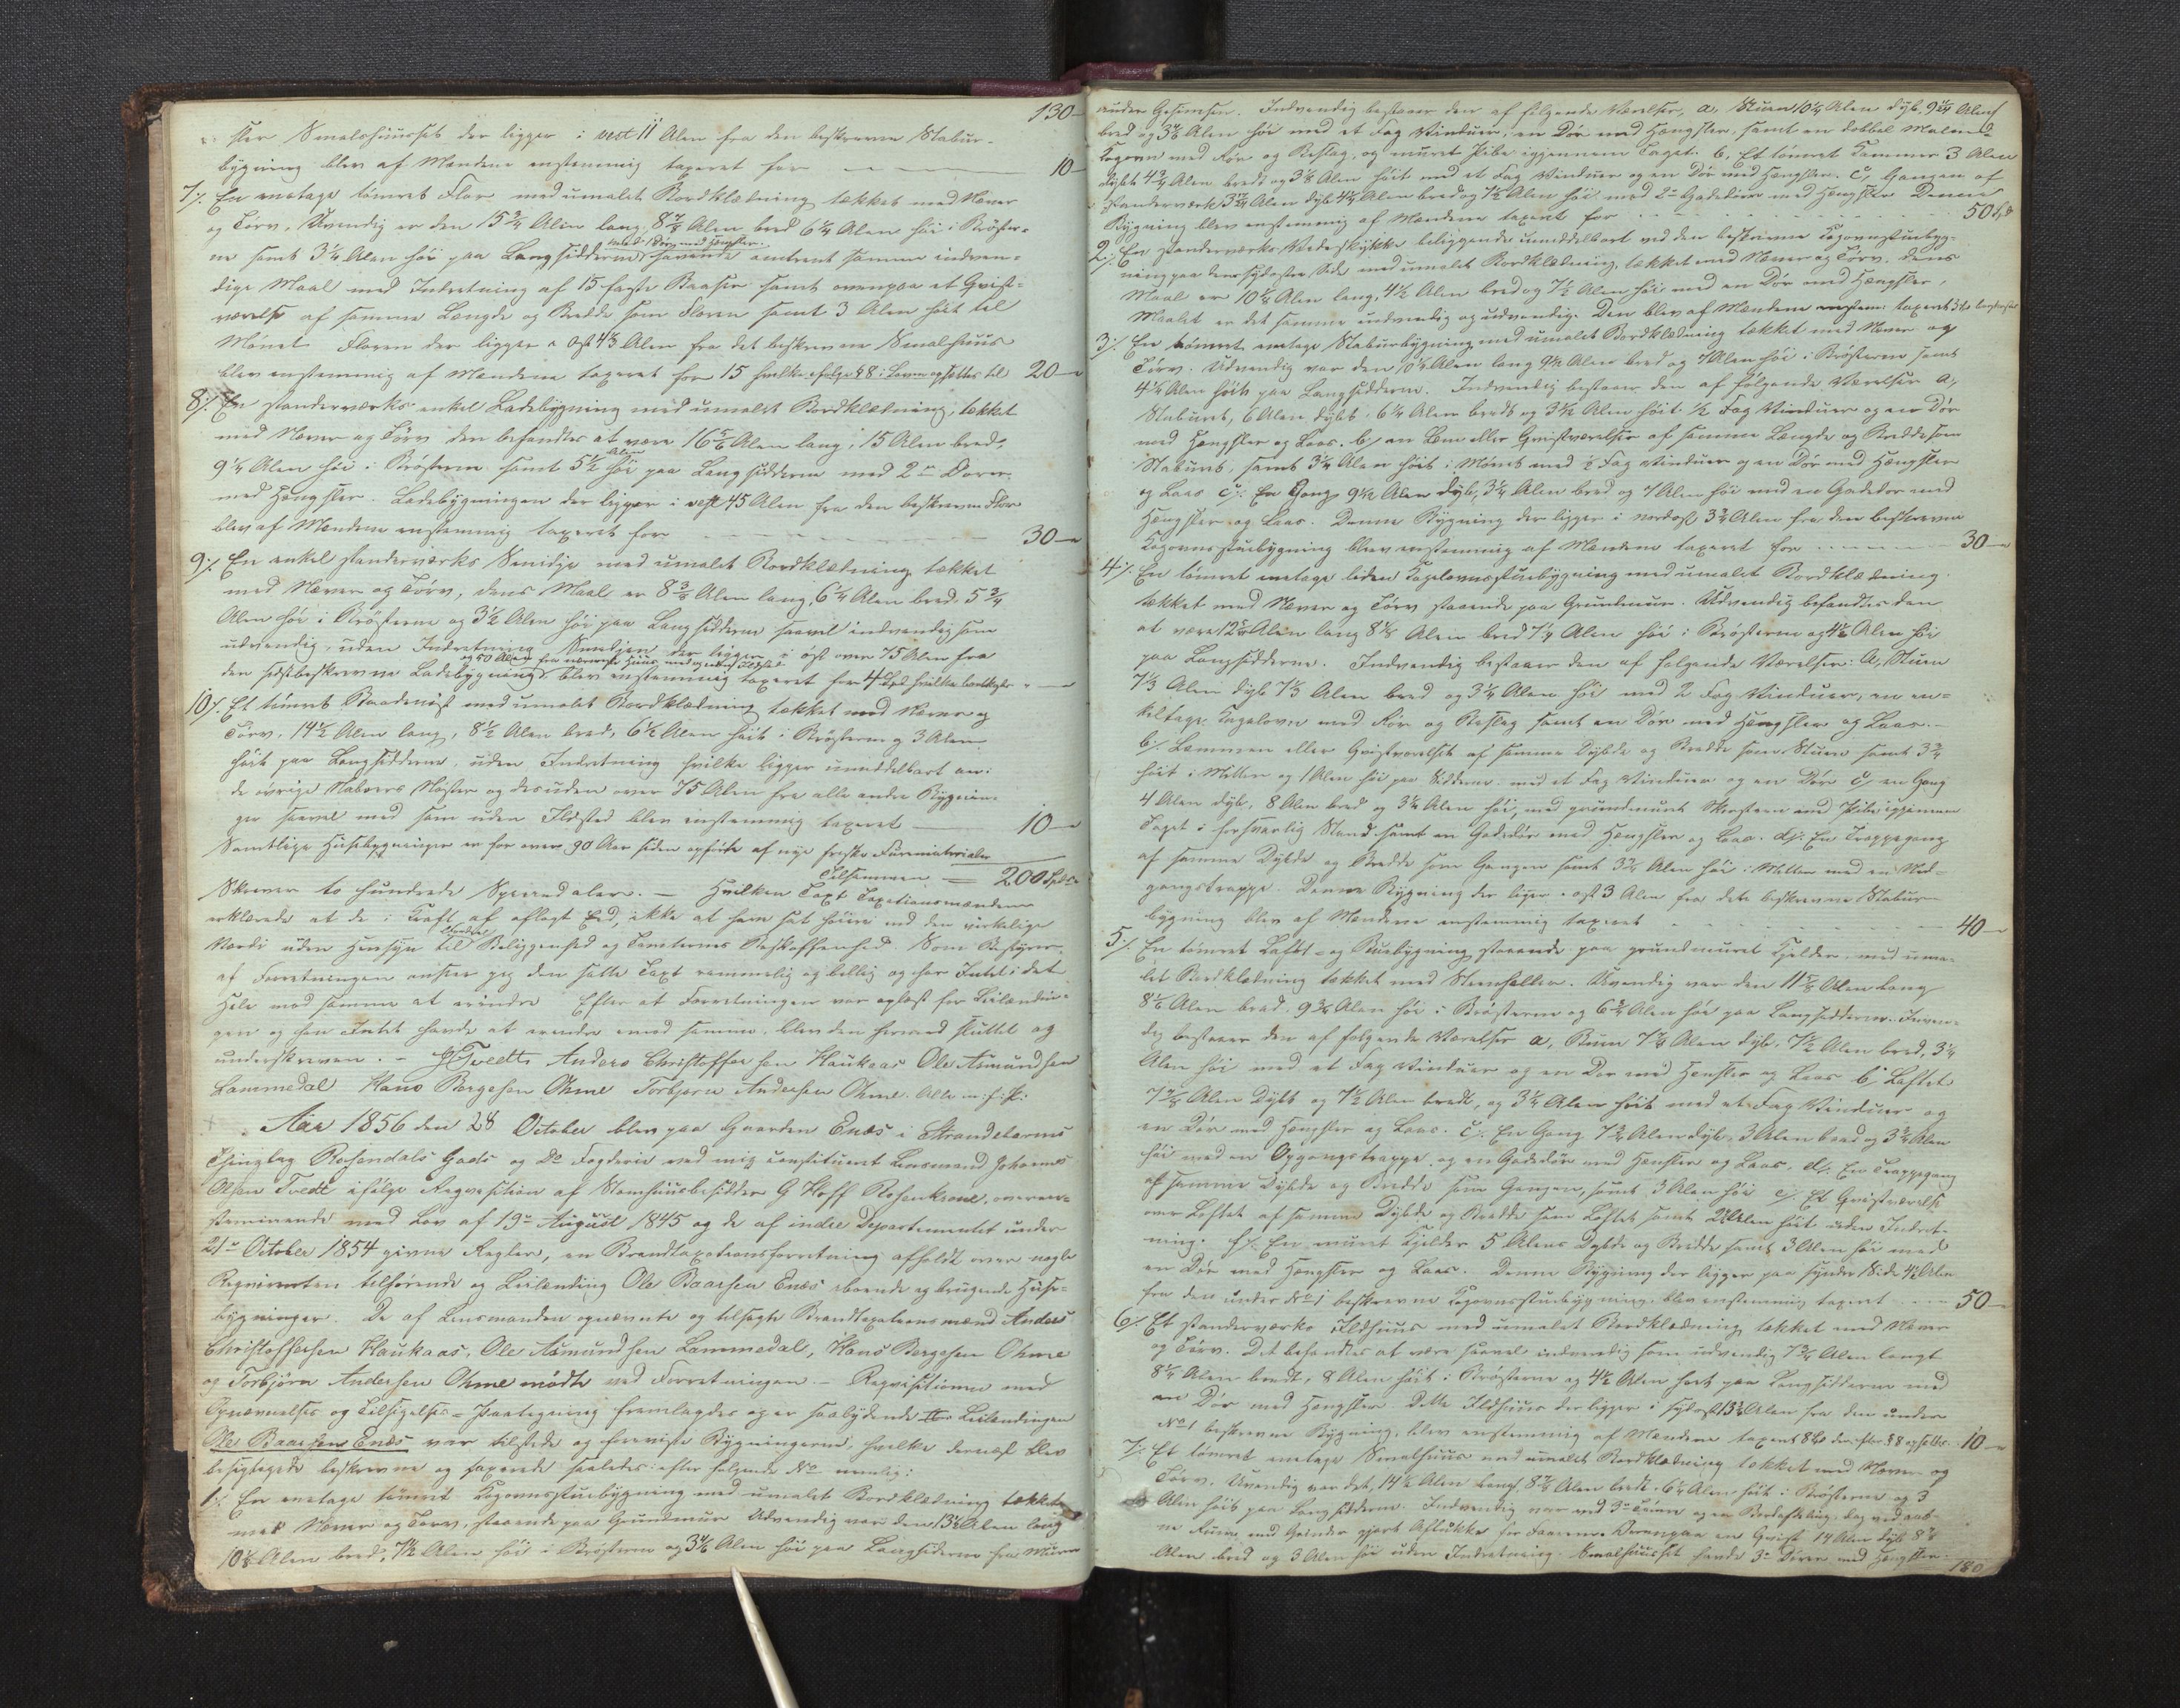 130-
ster Smalehuuset der ligger i vest 11 Alen fra den beskrevne Stabur-
bygning blev af Mændene enstemmig taxeret for 10-
7/. En enetage tømret Flor med umalet Bordklædning tækket med Næver
og Torv, Udvendig er den 15 3/4 Alen lang, 8 7/8 Alen bred 6 1/4 Alen høi i Brøster-
med 1 Dør med Hængsler.
ne samt 3 1/4 Alen høi paa Langsidderne, havende omtrent samme indven-
dige Maal med Indretning af 15 faste Baaser samt ovenpaa et Qvist-
værelse af samme Længde og Bredde som Floren samt 3 Alen høit til
Mønet. Floren der ligger i Ost 43 Alen fra det beskrevne Smalehuus
blev enstemmig af Mændene taxeret for 15 hvilke ifølge § 8 i Loven opsættes til 20-
8/. En standerværks enkel Ladebygning med umalet Bordklædning, tækket
med Næver og Torv den befandtes at være 16 5/6 Alen lang, 15 Alen bred,
Alen
9 1/4 Alen høi i Brøsterne samt 5 1/2 høi paa Langsidderne med 2de Dører
med Hængsler. Ladebygningen der ligger i vest 45 Alen fra den beskrevne Flor
blev af Mændene enstemmig taxeret for 30-
9/. En enkel standerværks Smidje med umalet Bordklædning tækket
med Næver og Torv, dens Maal er 8 3/8 Alen lang, 6 1/4 Alen bred 5 3/4
Alen høi i Brøsterne og 3 1/2 Alen høi paa Langsidderne saavel indvendig som
udvendig, uden Indretning. Smedjen der ligger i ost over 75 Alen fra
og 50 Alen fra nærmeste Huus med og uden Ildsted
den sidstbeskrevne Ladebygning blev enstemmig taxeret for 4 Spd hvilke bortkastes " -
10/. Et tømret Baadenøst med umalet Bordklædning tækket med Næver og
Torv, 14 1/2 Alen lang, 8 1/2 Alen bred, 6 1/2 Alen høit i Brøsterne og 3 Alen
høit paa Langsidderne, uden Indretning hvilke ligger umiddelbart ved
de øvrige Naboers Nøster og desuden over 75 Alen fra alle andre Bygnin-
ger saavel med som uden Ildsted blev enstemmig taxeret 10-
Samtlige Huusbygninger er for over 90 Aar siden opførte af nye friske Furematerialer
Tilsammen = 200 Spd
Skriver to hundrede Speciedaler. - Hvilken Taxt Taxationsmændene
erklærede at de i Kraft af aflagt Eed, ikke at have sat høiere end den virkelige
Værdi uden Hensyn til Beliggenhed og Tomternes Beskaffenhed. Som Bestyrer
af Forretningen ansees jeg den satte Taxt rammelig og billig og har Intet i det
Hele mod samme at erindre. Efter at Forretningen var oplæst for Leilændin-
gen og han Intet havde at erindre imod samme, blev den hermed sluttet og
underskreven. - J. Tvedte Anders Christoffersen Haukaas Ole Asmundsen
Lammedal Hans Børgesen Ohme Torbjørn Andersen Ohme. Alle m. f. P.
Aar 1856 den 28 October blev paa Gaarden Enæs i Strandebarms
Thinglag Rosendals Gods og Do Fogderie ved mig constitueret Lensmand Johannes
Olsen Tvedt ifølge Reqvisition af Stamhuusbesidder G Hoff Rosenkrone, overen-
stemmende med Lov af 19de August 1845 og de af indre Departementet under
21de October 1854 givne Regler, en Brandtaxationsforretning afholdt over nogle
Reqvirenten tilhørende og Leilænding Ole Baarsen Enæs iboende og brugende Huse-
bygninger. De af Lensmanden opnævnte og tilsagte Brandtaxationsmænd Anders
Christoffersen Haukaas, Ole Asmundsen Lammedal, Hans Børgesen Ohme
og Torbjørn Andersen Ohme mødte ved Forretningen. - Reqvisitionen med
Opnævnelses og Tilsigelses-Paategning fremlagdes og er saalydende Leilændingen
Ole Baarsen Enæs var tilstede og foreviste Bygningerne, hvilke dernæst blev
besigtigede beskrevne og taxerede saaledes efter følgende No nemlig:
1/. En enetage tømret Kogovnsstuebygning med umalet Bordklædning tækket
med Næver og Torv, staaende paa Grundmuur. Udvendig var den 13 1/4 Alen lang
10 1/8 Alen bred, 7 1/2 Alen høi i Brøsterne og 3 3/4 Alen høi paa Langsiderne fra Muren
under Gesimsen. Indvendig bestaaer den af følgende Værelser, a, Stuen 10 1/4 Alen dyb, 9 1/4 Alen
bred og 3 3/8 Alen høi med et Fag Vinduer, en Dør med Hængsler, samt en dobbel Malm-
Kogovn med Rør og Beslag, og muret Pibe igjennem Taget. b, Et tømret Kammer 3 Alen
dybt 4 3/4 Alen bredt og 3 3/8 Alen høit med et Fag Vinduer og en Dør med Hængsler. c, Gangen af
Standerværk 3 3/4 Alen dyb 4 1/4 Alen bred og 7 1/2 Alen høi med 2de Gadedører med Hængsler Denne
Bygning blev enstemmig af Mændene taxeret for 50 Spd
2/. En Standerværks Vedeskykke beliggende umiddelbart ved den beskrevne Kogovnsstuebyg-
ning paa den sydostre Side med umalet Bordklædning, tækket med Næver og Torv. Dens
Maal er 10 1/8 Alen lang, 4 1/2 Alen bred og 7 1/2 Alen høi med en Dør med Hængsler,
Maalet er det samme indvendig og udvendig. Den blev af Mændene enstem: taxeret 3 Spd bortkastes
3/. En tømret enetage Staburbygning med umalet Bordklædning tækket med Næver og
Torv. Udvendig var den 10 1/4 Alen lang 9 1/2 Alen bred og 7 Alen høi i Brøsterne samt
4 1/4 Alen høit paa Langsidderne. Indvendig bestaaer den af følgende Værelser a,
Staburet, 6 Alen dybt, 6 1/4 Alen bredt og 3 1/4 Alen høit 1/2 Fag Vinduer og en Dør
med Hængsler og Laas. b, en Lem eller Qvistværelse af samme Længde og Bredde som
Staburet, samt 3 1/4 Alen høit i Mønet med 1/2 Fag Vinduer og en Dør med Hængsler
og Laas c/. En Gang 9 1/2 Alen dyb, 3 1/4 Alen bred og 7 Alen høi med en Gadedør med
Hængsler og Laas. Denne Bygning der ligger i nordost 3 3/4 Alen fra den beskrevne
Kogovnsstuebygning blev enstemmig af Mændene taxeret for 30-
4/. En tømret enetage liden Kagelovnsstuebygning med umalet Bordklædning
tækket med Næver og Torv staaende paa Grundmuur. Udvendig befandtes den
at være 12 Alen lang 8 1/8 Alen bred 7 1/4 Alen høi i Brøsterne og 4 1/2 Alen høi
paa Langsidderne. Indvendig bestaaer den af følgende Værelser: a, Stuen
7 1/3 Alen dyb 7 1/3 Alen bred og 3 1/4 Alen høi med 2 Fag Vinduer, en en-
keltage Kagelovn med Rør og Beslag samt en Dør med Hængsler og Laas. -
b/. Lemmen eller Qvistværelset af samme Dybde og Bredde som Stuen samt 3 3/4
høit i Mitten og 1 Alen høi paa Sidderne med et Fag Vinduer og en Dør c, en Gang
4 Alen dyb, 8 Alen bred og 3 1/4 Alen høi, med grundmuret Skorsteen med Pibe igjennem
Taget i forsvarlig Stand samt en Gadedør med Hængsler og Laas. d/. En Trappegang
af samme Dybde og Bredde som Gangen samt 3 3/4 Alen høi i Mitten med en Ned-
gangstrappe. Denne Bygning der ligger i ost 3 Alen fra dets beskrevne Stabur-
bygning blev af Mændene enstemmig taxeret 40-
5/. En tømret Lofts- og Buebygning staaende paa grundmuret Kjelder, med uma-
let Bordklædning tækket med Steenheller. Udvendig var den 11 5/8 Alen lang
8 1/6 Alen bred, 9 3/4 Alen høi i Brøsterne og 6 3/4 Alen høi paa Langsidderne. Inven-
dig bestaaer den af følgende Værelser a, Buen 7 7/8 Alen dyb, 7 1/2 Alen bred, 3 1/4
Alen høi med et Fag Vinduer og en Dør med Hængsler og Laas b, Loftet
7 7/8 Alen dybt og 7 1/2 Alen bredt, og 3 1/4 Alen høit med et Fag Vinduer og
en Dør med Hængsler og Laas. c/. En Gang 7 3/4 Alen dyb, 3 Alen bred og 3 3/4 Alen
høi med en Opgangstrappe og en Gadedør med Hængsler og Laas, d/. En Trappegang
af samme Dybde og Bredde som Gangen, samt 3 Alen høi e/. Et Qvistværelse
over Loftet af samme Dybde og Bredde som Loftet samt 2 Alen høit uden Indret-
ning. f/. En muret Kjelder 5 Alens Dybde og Bredde samt 3 Alen høi med
en Dør med Hængsler og Laas. Denne Bygning der ligger paa syndre Side 4 1/2 Alen
fra den under No 1 beskrevne Kogovnsstuebygning, blev enstemmig taxeret 50-
6/. Et standerværks Ildhuus med umalet Bordklædning tækket med Næver
og Torv. Det befandtes at være saavel indvendig som udvendig 7 3/4 Alen langt
8 1/4 Alen bredt, 8 Alen høit i Brøsterne og 4 1/2 Alen høit paa Langsidderne med
en Dør med Hængsler. Dette Ildhuus der ligger i sydost 13 1/2 Alen fra den under
No 1 beskrevne Bygning, blev enstemmig af Mændene taxeret 8 Spd der efter § 8 opsættes 10-
7/. Et tømret enetage Smalehuus med umalet Bordklædning tækket med Næver og
Torv. Udvendig var det, 14 1/2 Alen langt 8 3/4 Alen bredt, 6 1/4 Alen høit i Brøsterne og 3
Alen høit paa Langsidderne. Indvendig var ved 3de og en Bordafdeling, dog ved aab-
ne Rum, med Grinder gjort Aflukke for Faarene. Derovenpaa en Qvist 14 Alen dyb 8
Alen bred og 3 Alen høi uden Indretning. Smalehuuset havde 3de Dører med Hængsler.
180